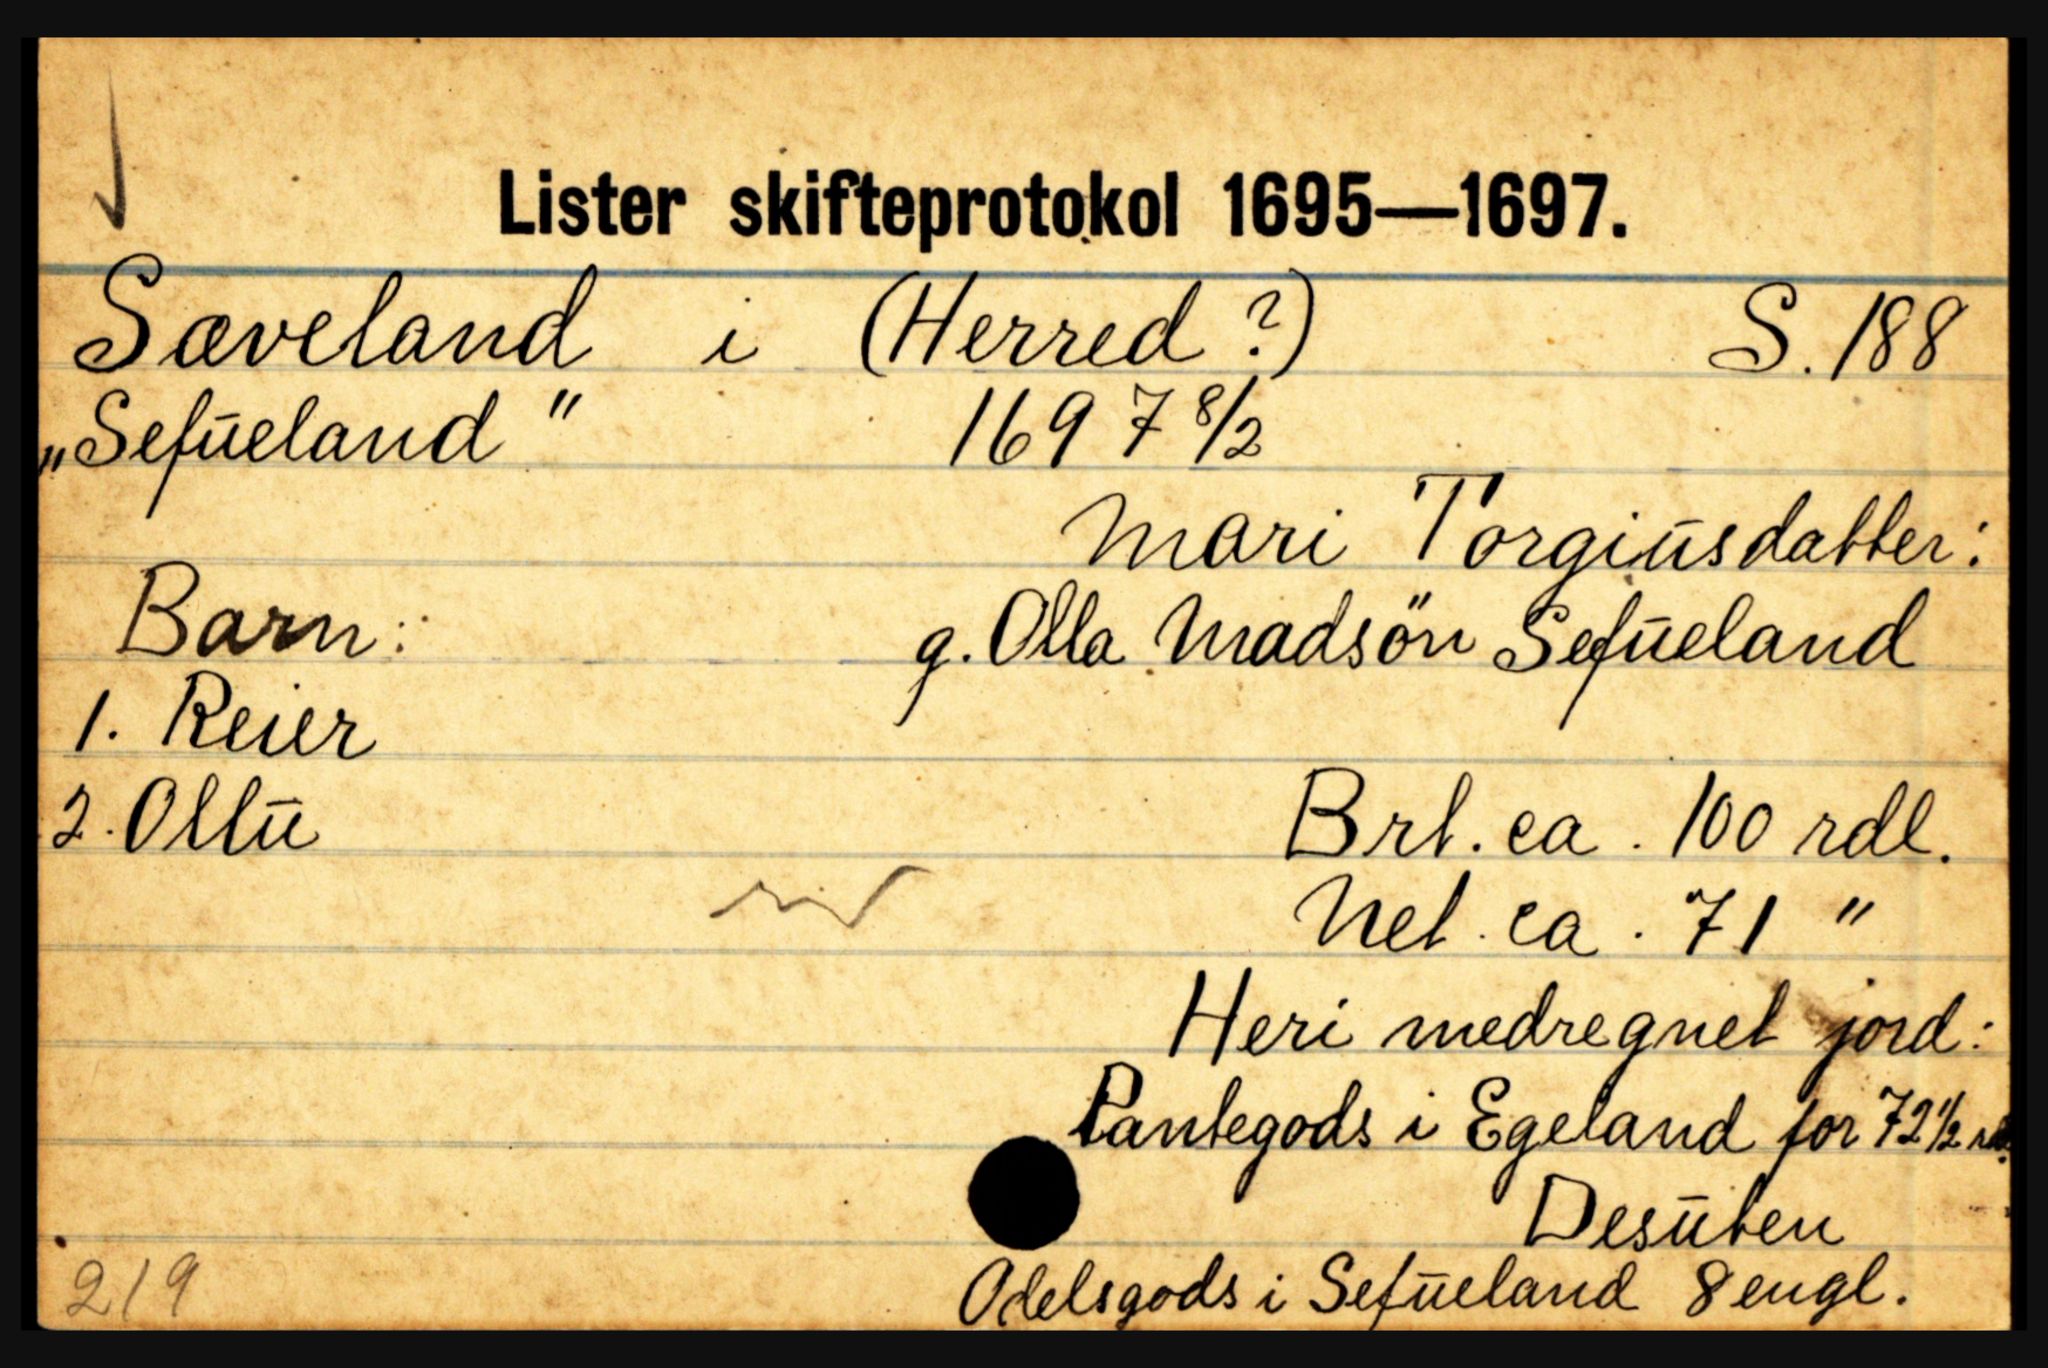 Lister skifteprotokol 1695—1697.
Sæveland i (Herred ?) S. 188
„Sefūeland" 1697 8/2
Mari Torgiūsdatter:
Barn: g. Olla Madsön Sefūeland
1. Reier
2. Ollū Brt. ca. 100 rdl.
Net. ca. 71 "
Heri medregnet jord:
Pantegods i Egeland for 72 1/2 rdl.
Desūten
Odelsgods i Sefūeland 8 engl.
219